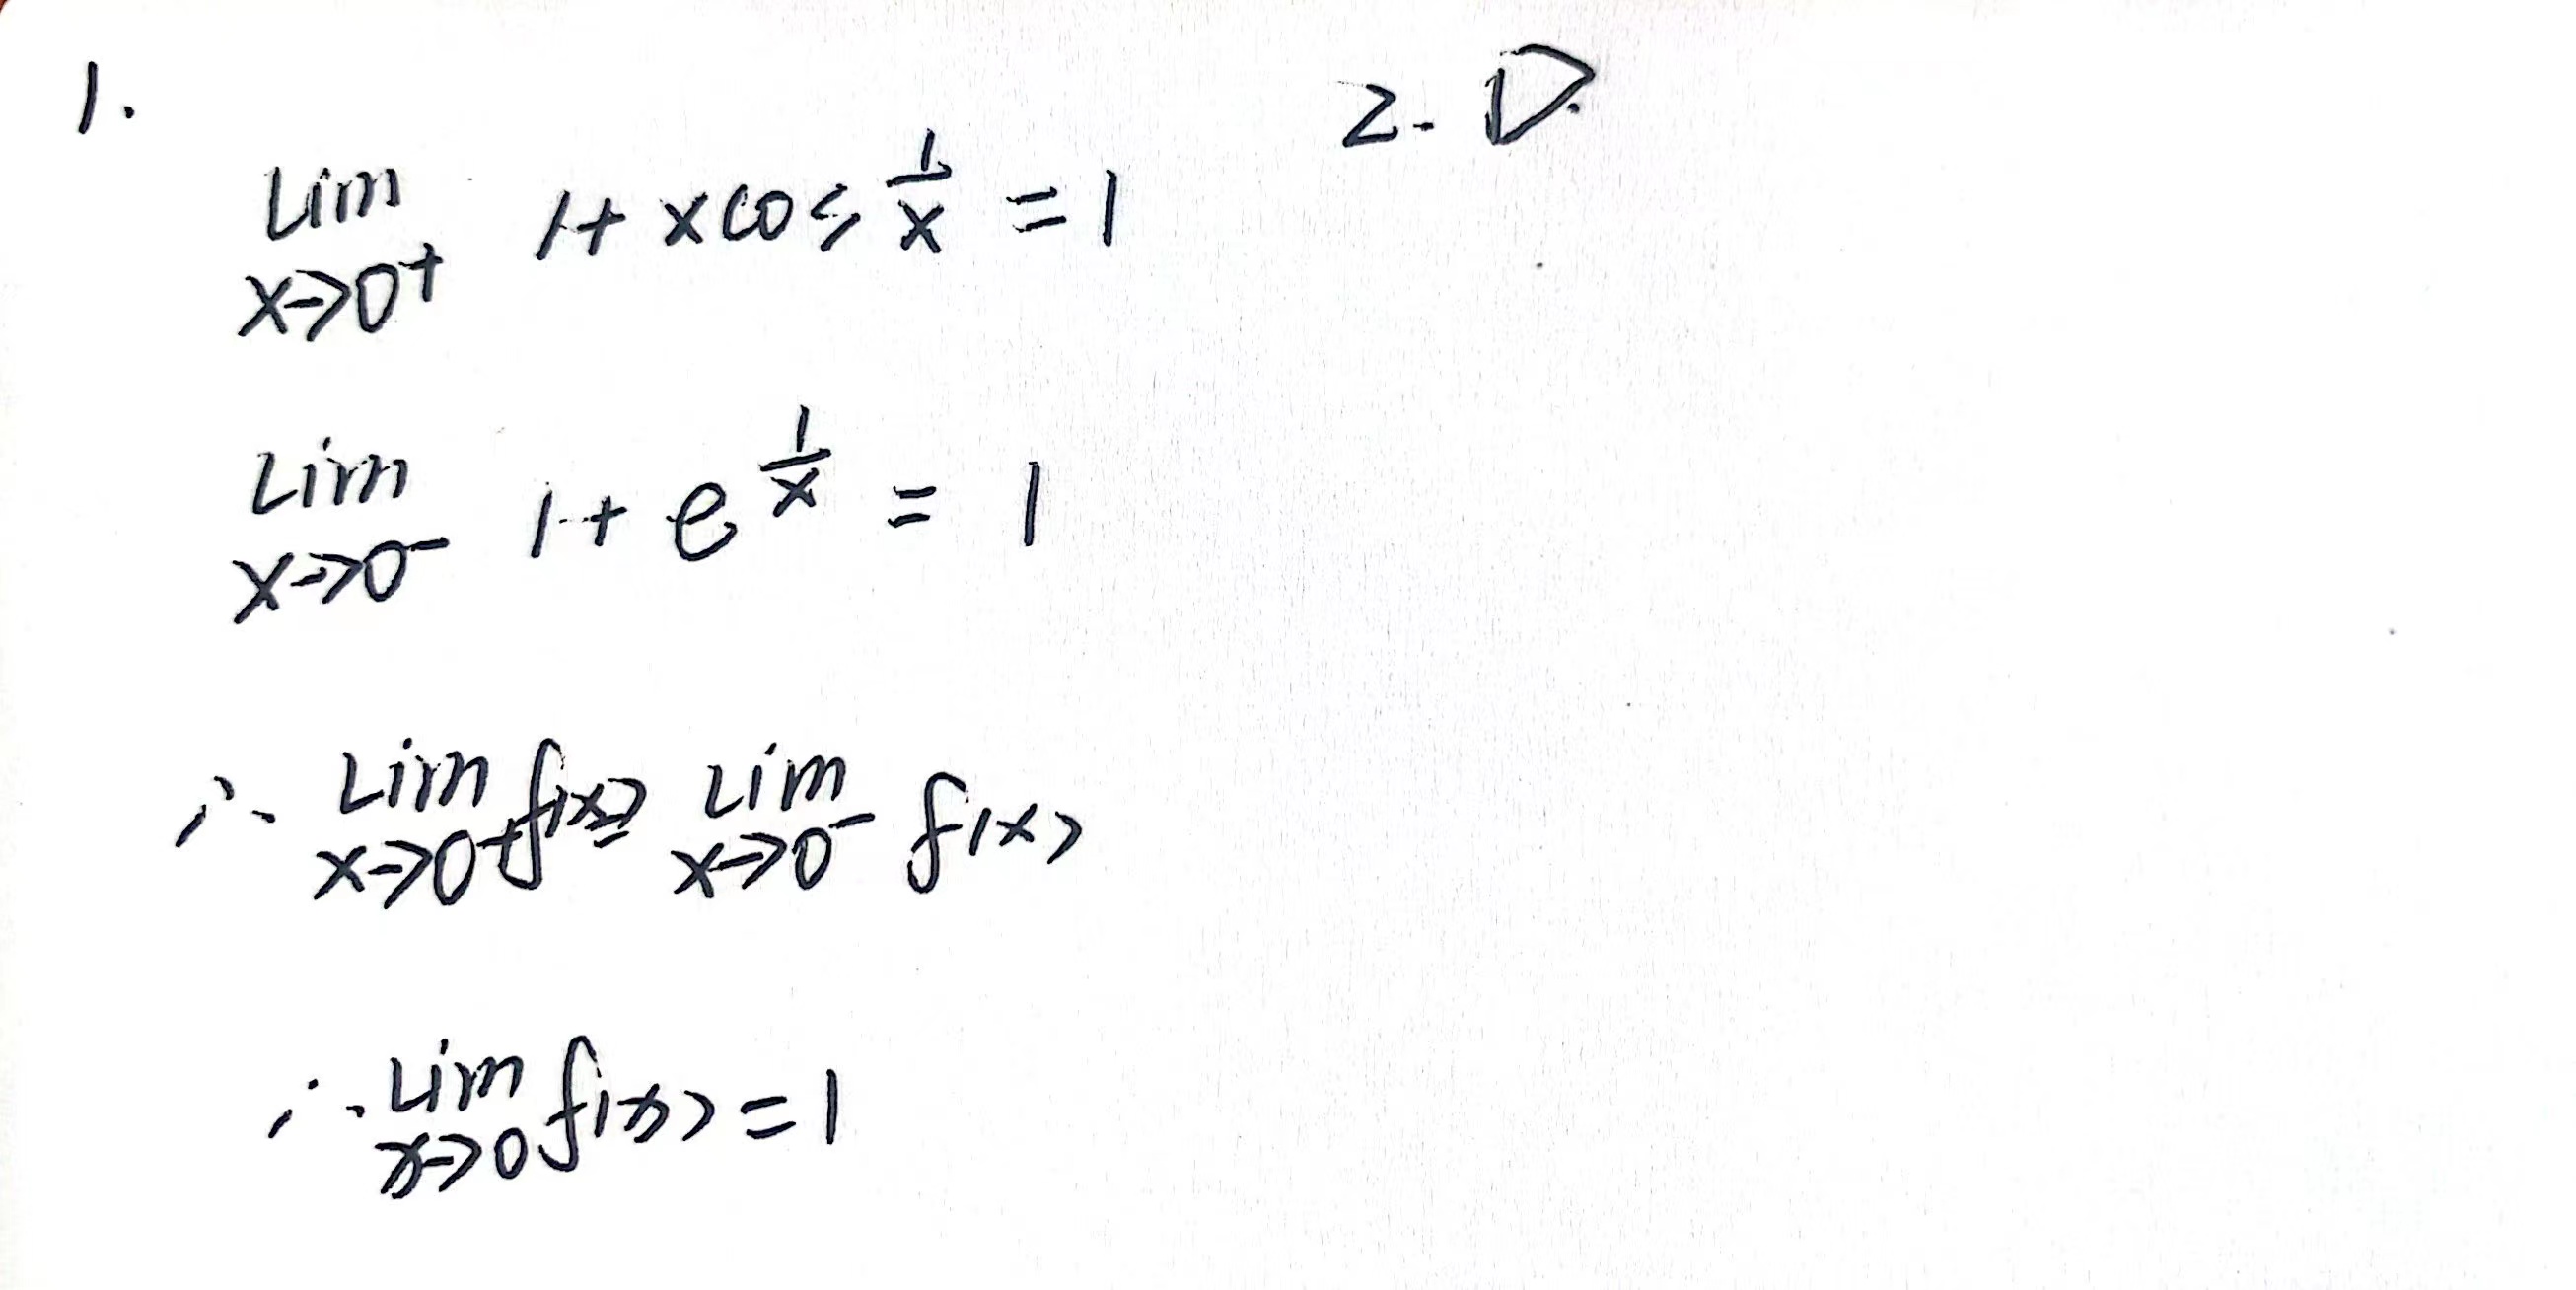 1.
lim x→0⁺ 1+xcos 1/x = 1
lim x→0⁻ 1+e^(1/x) = 1
∴ lim x→0⁺ f(x) = lim x→0⁻ f(x)
∴ lim x→0 f(x) = 1
2. D.